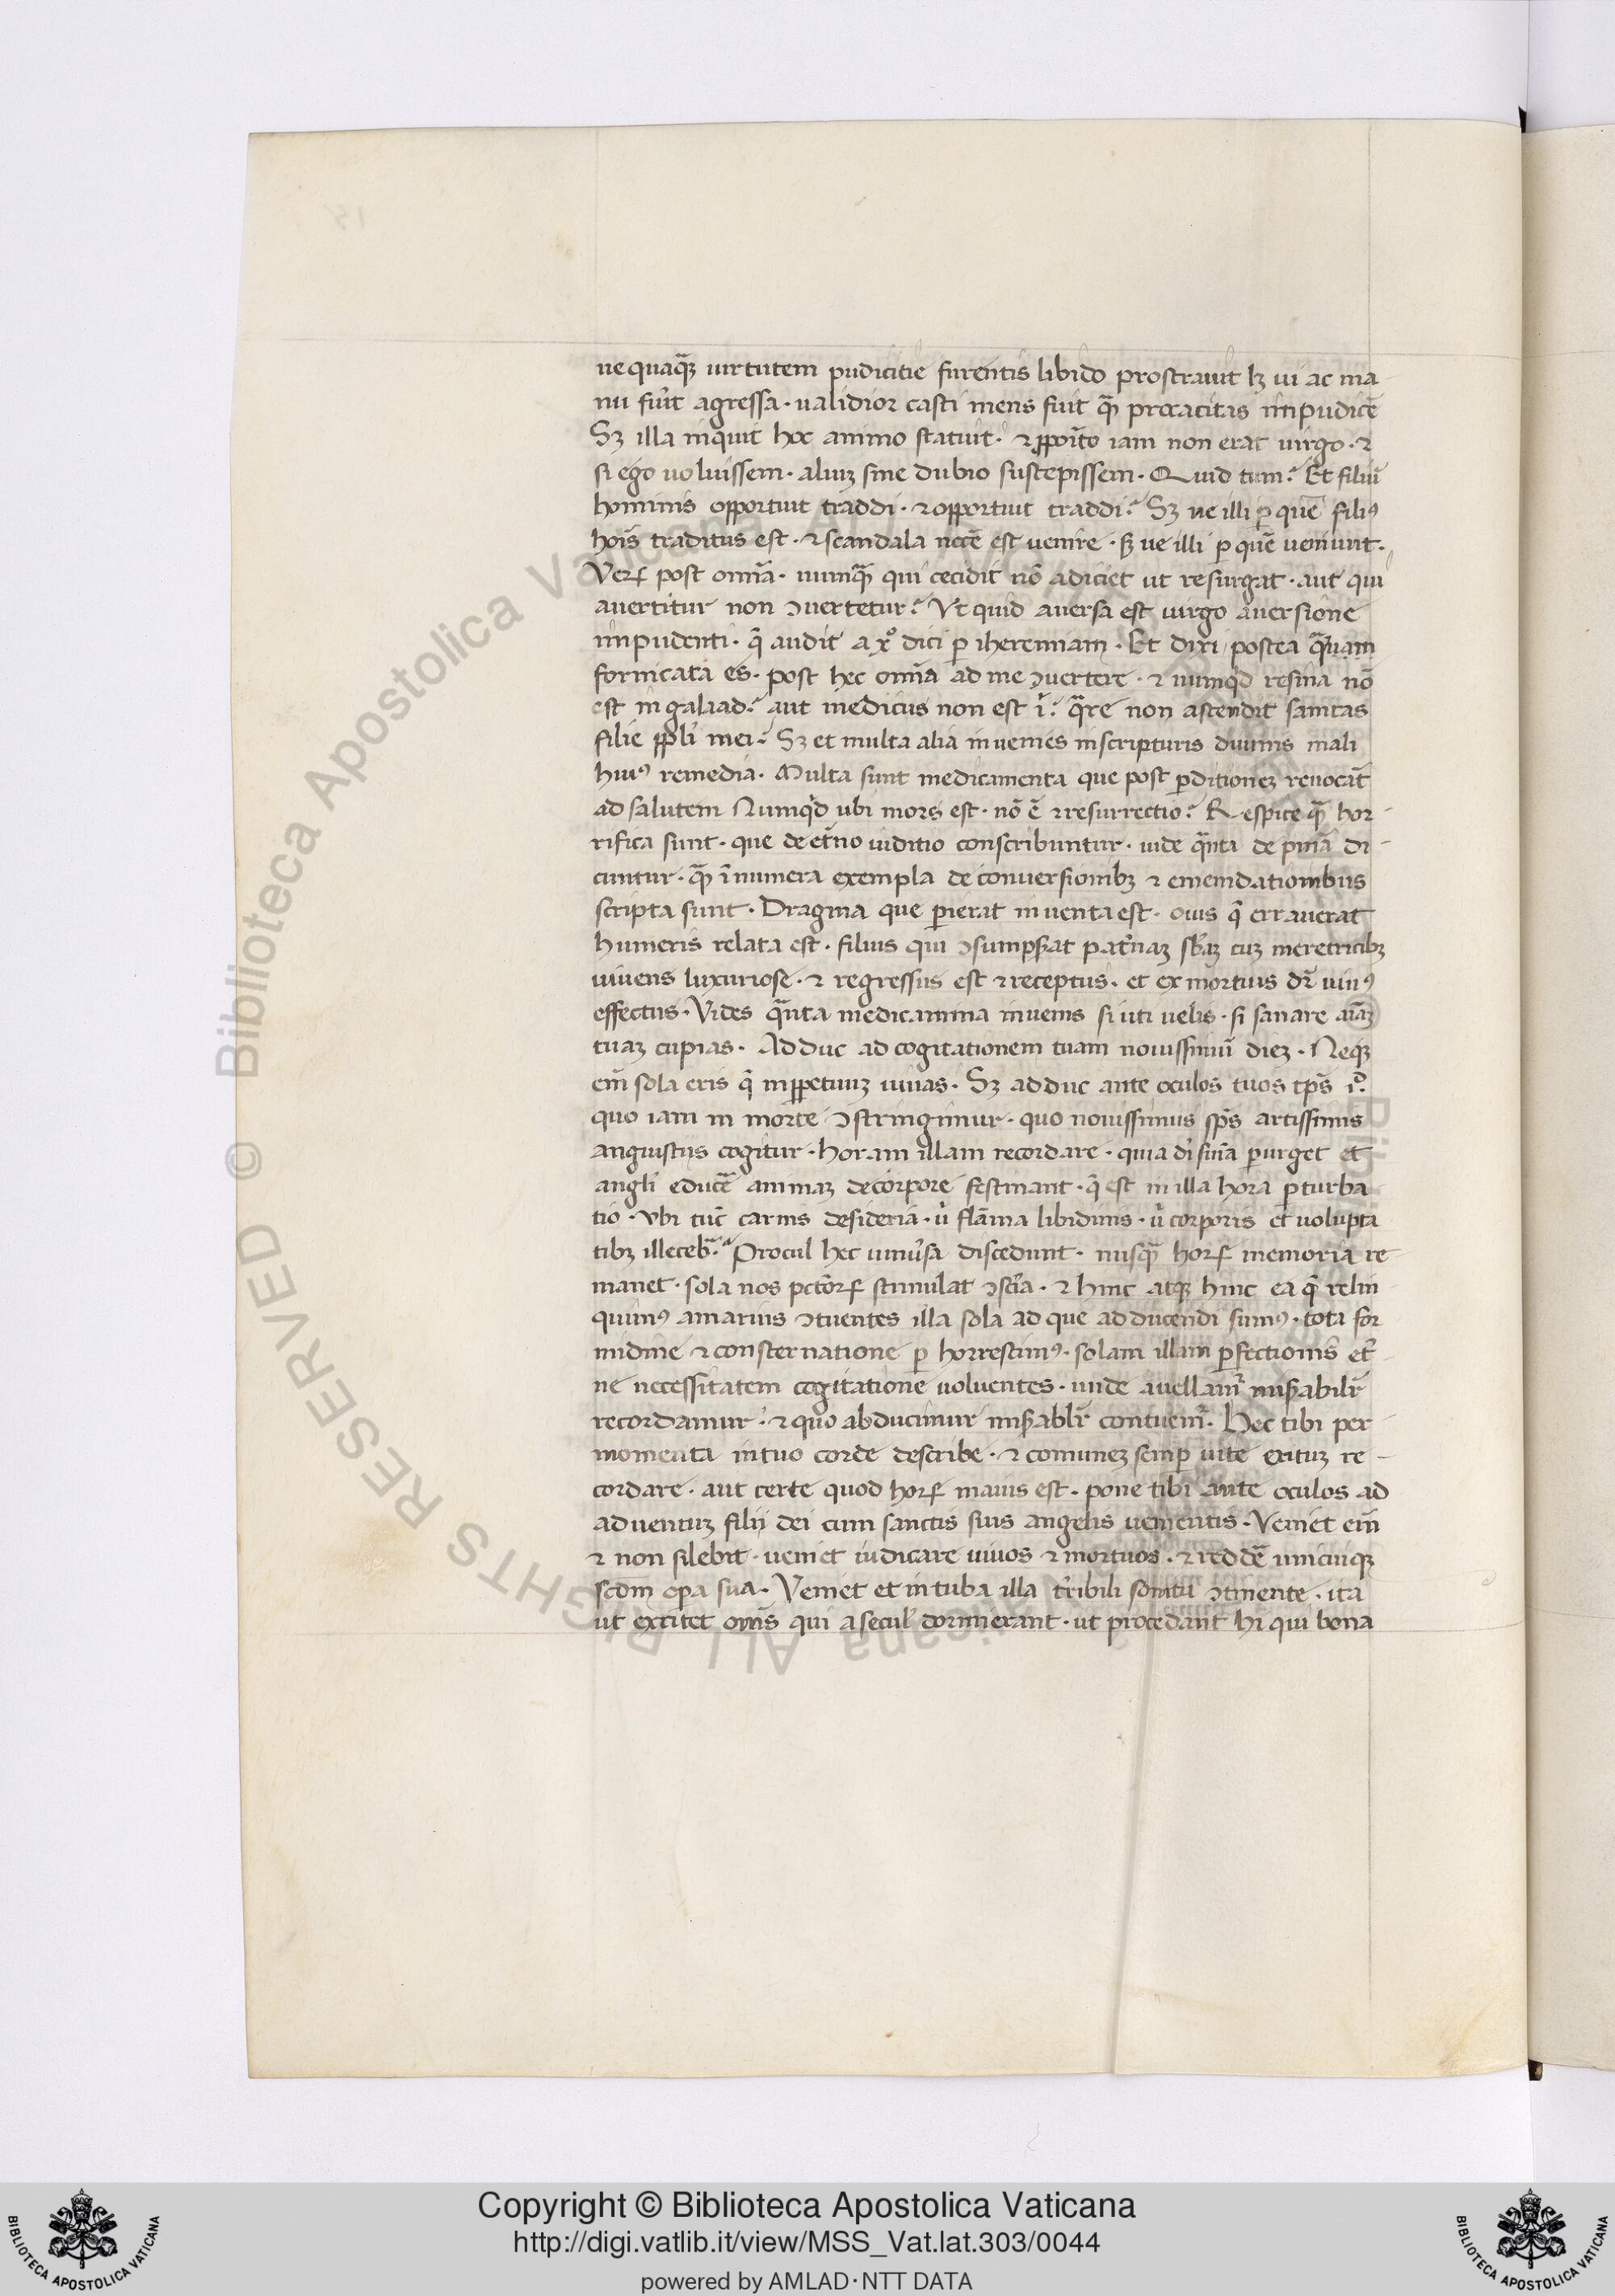 nequaqȝ uirtutem pudicitie furentis libido prostrauit lȝ ui ac ma-
nu fuit agressa · ualidior casti mens fuit q̃ꝫ procacitas impudice
Sȝ illa inquit hoc animo statuit · ⁊ ꝓpoĩto iam non erat uirgo · ⁊
si ego uoluissem · aliuȝ sine dubio suscepissem · Quid tum? Et filiũ
hominis opportuit traddi · ⁊ opportuit traddi? Sȝ ue illi ꝑ quẽ filiꝰ
hoĩs traditus est · ⁊ scandala necẽ est uenire · sȝ ue illi ꝑ quẽ ueniunt ·
Veꝝ post omĩa · numq̃ꝫ qui cecidit nõ adiciet ut resurgat · aut qui
auertitur non ꝯuertetur? Vt quid auersa est uirgo auersione
impudenti · q̃ audit a xp̃o dici ꝑ iheremiam · Et dixi postea q̃uam
fornicata es · post hec omĩa ad me ꝯuertere · ⁊ numqd resina nõ
est in galaad? aut medicus non est ĩ? q̃re non ascendit sanitas
filie ppl̃i mei? Sȝ et multa alia inuenies in scripturis diuinis mali
huiꝰ remedia · Multa sunt medicamenta que post ꝑditioneȝ reuocãt
ad salutem Numqd ubi mors est · nõ ẽ ⁊ resurrectio? Respice q̃ꝫ hor-
rifica sunt · que de et̃no iuditio conscribuntur · uide q̃nta de pnĩa di-
cuntur · q̃ꝫ ĩnumera exempla de conuersionibȝ ⁊ emendationibus
scripta sunt · Dragma que ꝑierat inuenta est · ouis q̃ errauerat
humeris relata est · filius qui ꝯsumpsat pat̃naȝ sb̃aȝ cuȝ meretricibȝ
uiuens luxuriose · ⁊ regressus est ⁊ receptus · et ex mortuis dr̃ uiuꝰ
effectus · Vides q̃nta medicamina inuenis si uti uelis · si sanare aĩaȝ
tuaȝ cupias · Adduc ad cogitationem tuam nouissimũ dieȝ · Neqȝ
em̃ sola eris q̃ inꝑpetuuȝ uiuas · Sȝ adduc ante oculos tuos tp̃s iᵈ ·
quo iam in morte ꝯstringimur · quo nouissimus sp̃s artissimis
angustiis cogitur · horam illam recordare · quia di snĩa ꝑurget et
angli educẽ animaȝ de corpore festinant · q̃ est in illa hora ꝑturba
tio · vbi tũc carnis desideria · ủ flãma libidinis · ủ corporis et uolupta
tibȝ illecebᵃ? Procul hec uniũsa discedunt · nusq̃ꝫ hoꝝ memoria re
manet · sola nos pctõꝝ stimulat ꝯsciã · ⁊ hinc atqȝ hinc ea q̃ relin
quimꝰ amarius ꝯtuentes illa sola ad que adducendi sumꝰ · tota for
midine ⁊ consternatione ꝑ horrescimꝰ · solam illam ꝑfectionis et̃
ne necessitatem cogitatione uoluentes · unde auellamr̃ misabilr̃
recordamur · ⁊ quo abducimur misablr̃ contuemr̃ · Hec tibi per
momenta in tuo corde describe · ⁊ comuneȝ semꝑ uite exituȝ re-
cordare · aut certe quod hoꝝ maius est · pone tibi ante oculos ad
aduentuȝ filij dei cum sanctis suis angelis uenientis · Veniet em̃
⁊ non silebit · ueniet iudicare uiuos ⁊ mortuos · ⁊ reddẽ unicuiqȝ
scdm̃ opa sua · Veniet et in tuba illa tribili sonitu ꝯtinente · ita
ut excitet omñs qui a secul̃ dormierant · ut procedant hi qui bona
© Biblioteca Apostolica Vaticana ALL RIGHTS RESERVED
Copyright © Biblioteca Apostolica Vaticana
http://digi.vatlib.it/view/MSS_Vat.lat.303/0044
powered by AMLAD·NTT DATA
BIBLIOTECA APOSTOLICA VATICANA
BIBLIOTECA APOSTOLICA VATICANA